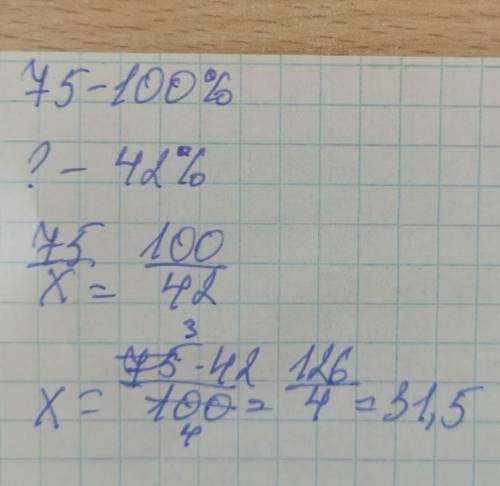 75-100%
? - 42%
75/x = 100/42
x = 75·42/100 = 126/4 = 31,5
3
4